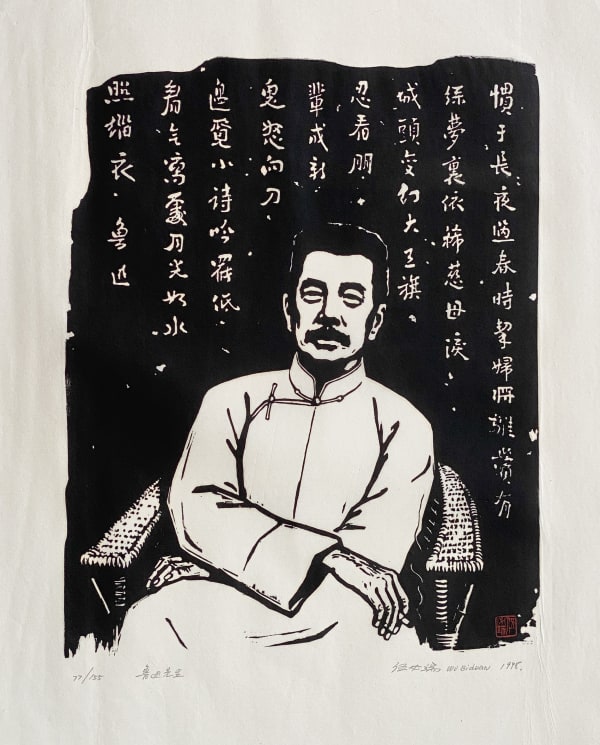 慣于長夜過春時挈婦將雛鬢有
絲夢裏依稀慈母淚
城頭變幻大王旗
忍看朋
輩成新
鬼怒向刀
邊覓小詩吟罷低
眉無寫處月光如水
照緇衣 魯迅
77/155 魯迅先生 伍必端 WU BIDUAN 1998.